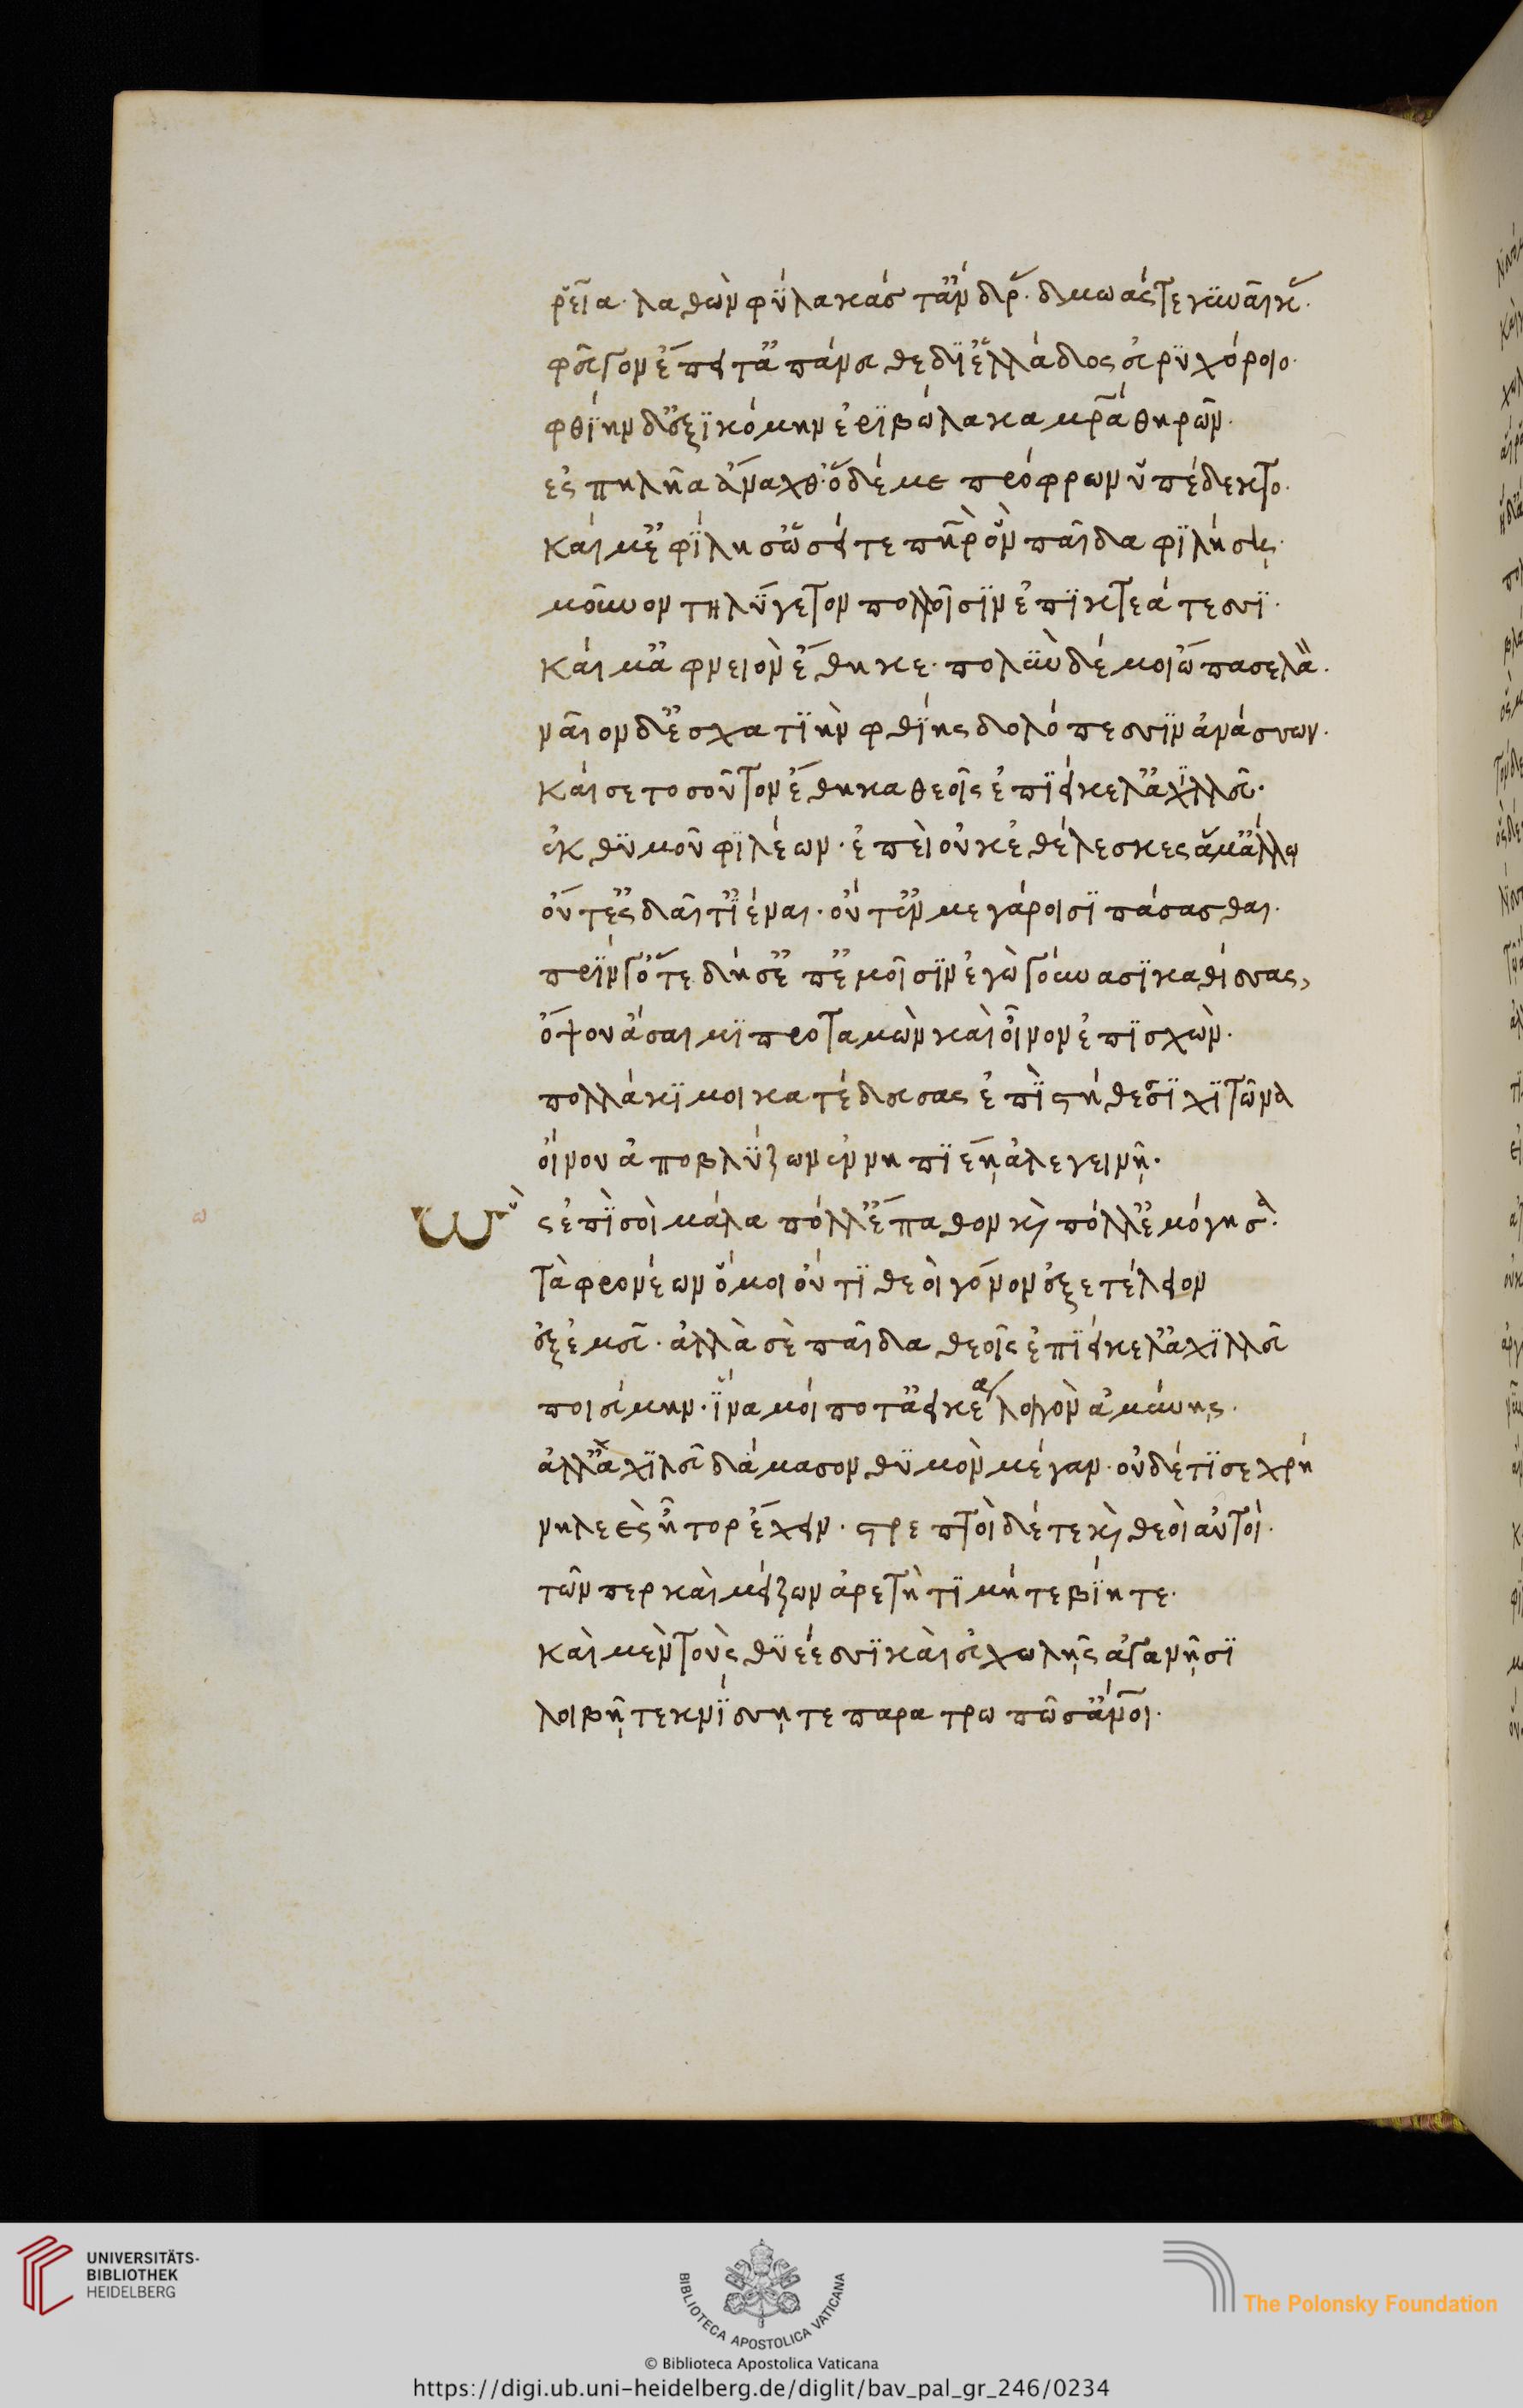 ῥεῖα· λαθὼν φύλακάς τ' ἄνδρας· δμωάς τε γυναῖκας·
φεῦγον ἔπειτ' ἀπάνευθε δι' ἑλλάδος εὐρυχόροιο·
φθίην δ' ἐξικόμην ἐριβώλακα μητέρα θηρῶν·
ἐς πηλῆα ἄναχθ'· ὁ δέ με πρόφρων ὑπέδεκτο·
καί μ' ἐφίλησ' ὡσεί τε πατὴρ ὃν παῖδα φιλήσει·
μοῦνον τηλύγετον πολλοῖσιν ἐπὶ κτεάτεσσι·
καί μ' ἀφνειὸν ἔθηκε· πολὺν δέ μοι ὤπασε λαόν·
ναῖον δ' ἐσχατιὴν φθίης δολόπεσσιν ἀνάσσων·
καί σε τοσοῦτον ἔθηκα θεοῖς ἐπιείκελ' ἀχιλλεῦ·
ἐκ θυμοῦ φιλέων· ἐπεὶ οὐκ ἐθέλεσκες ἅμ' ἄλλῳ
οὔτ' ἐς δαῖτ' ἰέναι· οὔτ' ἐν μεγάροισι πάσασθαι·
πρίν γ' ὅτε δή σ' ἐπ' ἐμοῖσιν ἐγὼ γούνασι καθίσσας,
ὄψου ἄσαιμι προταμὼν καὶ οἶνον ἐπισχών·
πολλάκι μοι κατέδευσας ἐπὶ στήθεσσι χιτῶνα
οἴνου ἀποβλύζων ἐν νηπιέῃ ἀλεγεινῇ·
Ὣς ἐπὶ σοὶ μάλα πόλλ' ἔπαθον καὶ πόλλ' ἐμόγησα·
τὰ φρονέων ὅ μοι οὔτι θεοὶ γόνον ἐξετέλειον
ἐξ ἐμεῦ· ἀλλὰ σὲ παῖδα θεοῖς ἐπιείκελ' ἀχιλλεῦ
ποιεύμην· ἵνα μοί ποτ' ἀεικέα λοιγὸν ἀμύνῃς·
ἀλλ' ἀχιλεῦ δάμασον θυμὸν μέγαν· οὐδέ τί σε χρή
νηλεὲς ἦτορ ἔχειν· στρεπτοὶ δέ τε καὶ θεοὶ αὐτοί·
τῶν περ καὶ μείζων ἀρετὴ τιμή τε βίη τε·
καὶ μὲν τοὺς θυέεσσι καὶ εὐχωλῇς ἀγανῇσι
λοιβῇ τε κνίσσῃ τε παρατρωπῶσ' ἄνθρωποι·
ω
UNIVERSITÄTS-
BIBLIOTHEK
HEIDELBERG
BIBLIOTECA APOSTOLICA VATICANA
The Polonsky Foundation
© Biblioteca Apostolica Vaticana
https://digi.ub.uni-heidelberg.de/diglit/bav_pal_gr_246/0234